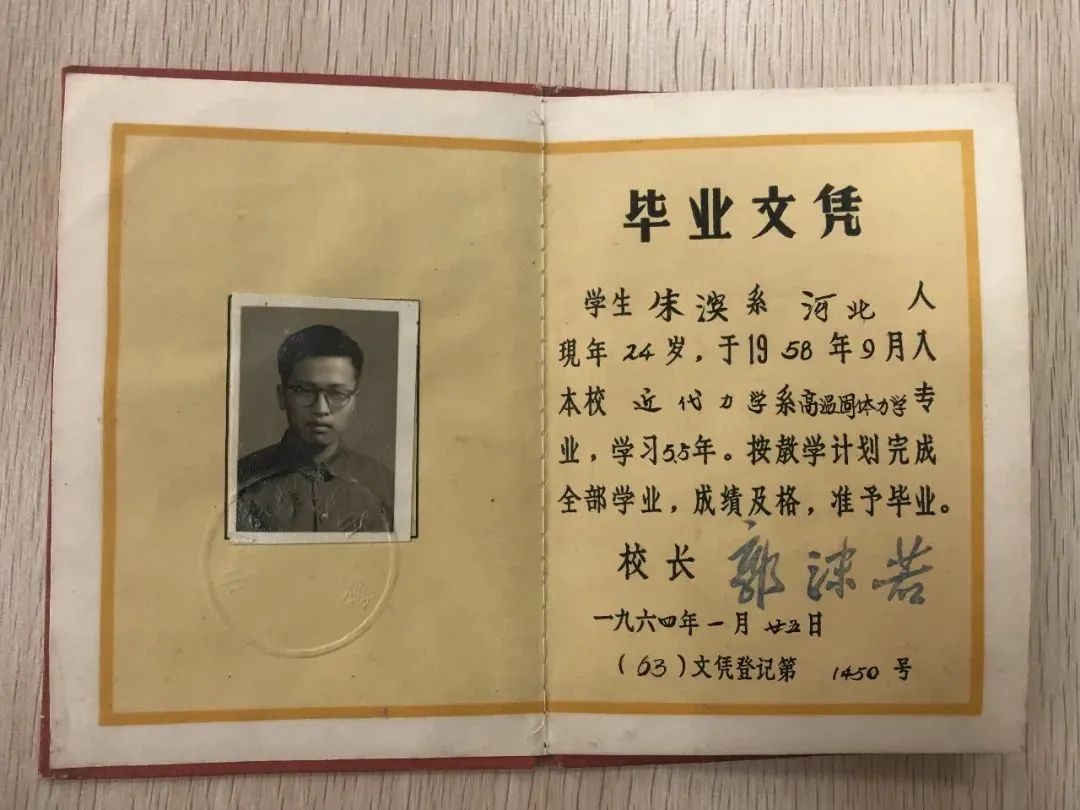 毕业文凭
学生 朱滨 系 河北 人
現年 24 岁，于19 58 年 9 月入
本校 近代力学系高温固体力学专
业，学习5.5年。按教学计划完成
全部学业，成绩及格，准予毕业。
校长 郭沫若
一九六四年一月廿五日
（63）文凭登记第 1450 号